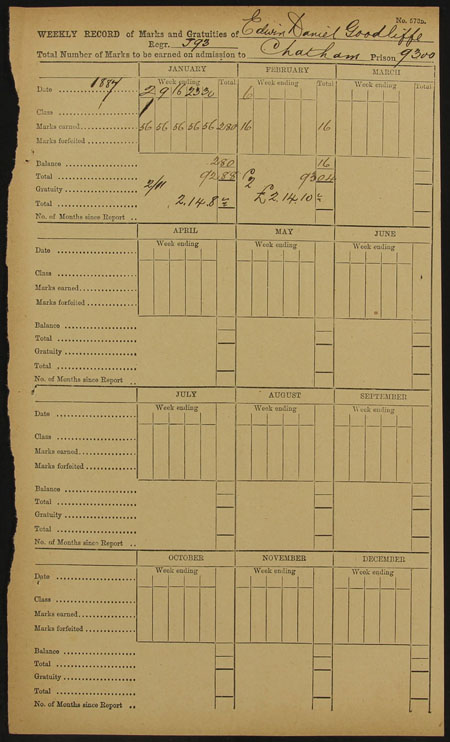 No. 573a.
WEEKLY RECORD of Marks and Gratuities of Edwin Daniel Goodliffe
Regr. J93
Total Number of Marks to be earned on admission to Chatham Prison 9300
JANUARY FEBRUARY MARCH
1887 Week ending Total Week ending Total Week ending Total
Date 2 9 16 23 30 6
Class 1
Marks earned 56 56 56 56 56 280 16 16
Marks forfeited
Balance 280 16
Total 9288 9304
Gratuity 2/11 2
Total 2.14.8 £2.14.10
No. of Months since Report
APRIL MAY JUNE
Week ending Week ending Week ending
Date
Class
Marks earned
Marks forfeited
Balance
Total
Gratuity
Total
No. of Months since Report
JULY AUGUST SEPTEMBER
Week ending Week ending Week ending
Date
Class
Marks earned
Marks forfeited
Balance
Total
Gratuity
Total
No. of Months since Report
OCTOBER NOVEMBER DECEMBER
Week ending Week ending Week ending
Date
Class
Marks earned
Marks forfeited
Balance
Total
Gratuity
Total
No. of Months since Report